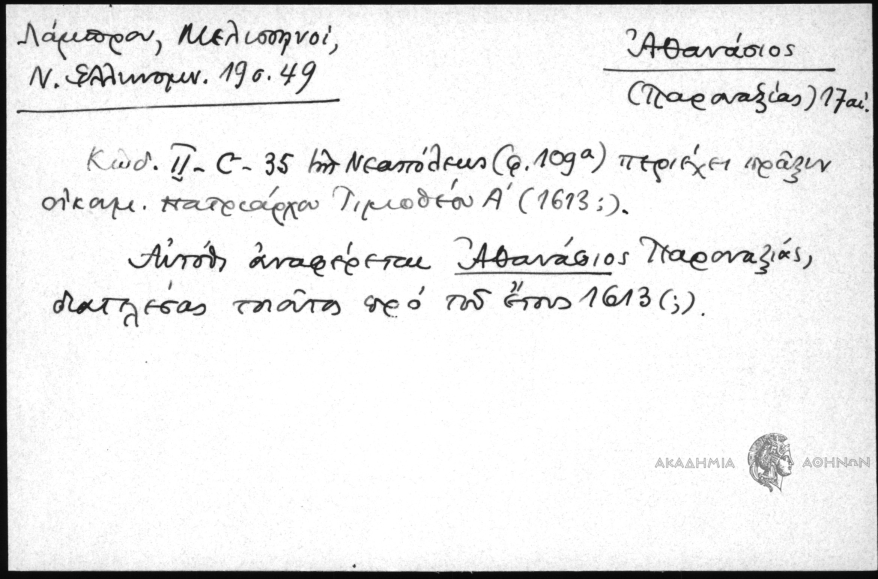 Λάμπρου, Μελισσηνοί,
Ν. Ἑλληνομν. 19 σ. 49
Ἀθανάσιος
(Παροναξίας) 17 αἰ.
Κῶδ. II - C - 35 τῆς Νεαπόλεως (φ. 109α) περιέχει πρᾶξιν
οἰκουμ. πατριάρχου Τιμοθέου Α' (1613;).
Αὐτόθι ἀναφέρεται Ἀθανάσιος Παροναξίας,
διατελέσας τοιοῦτος πρό τοῦ ἔτους 1613 (;).
ΑΚΑΔΗΜΙΑ ΑΘΗΝΩΝ